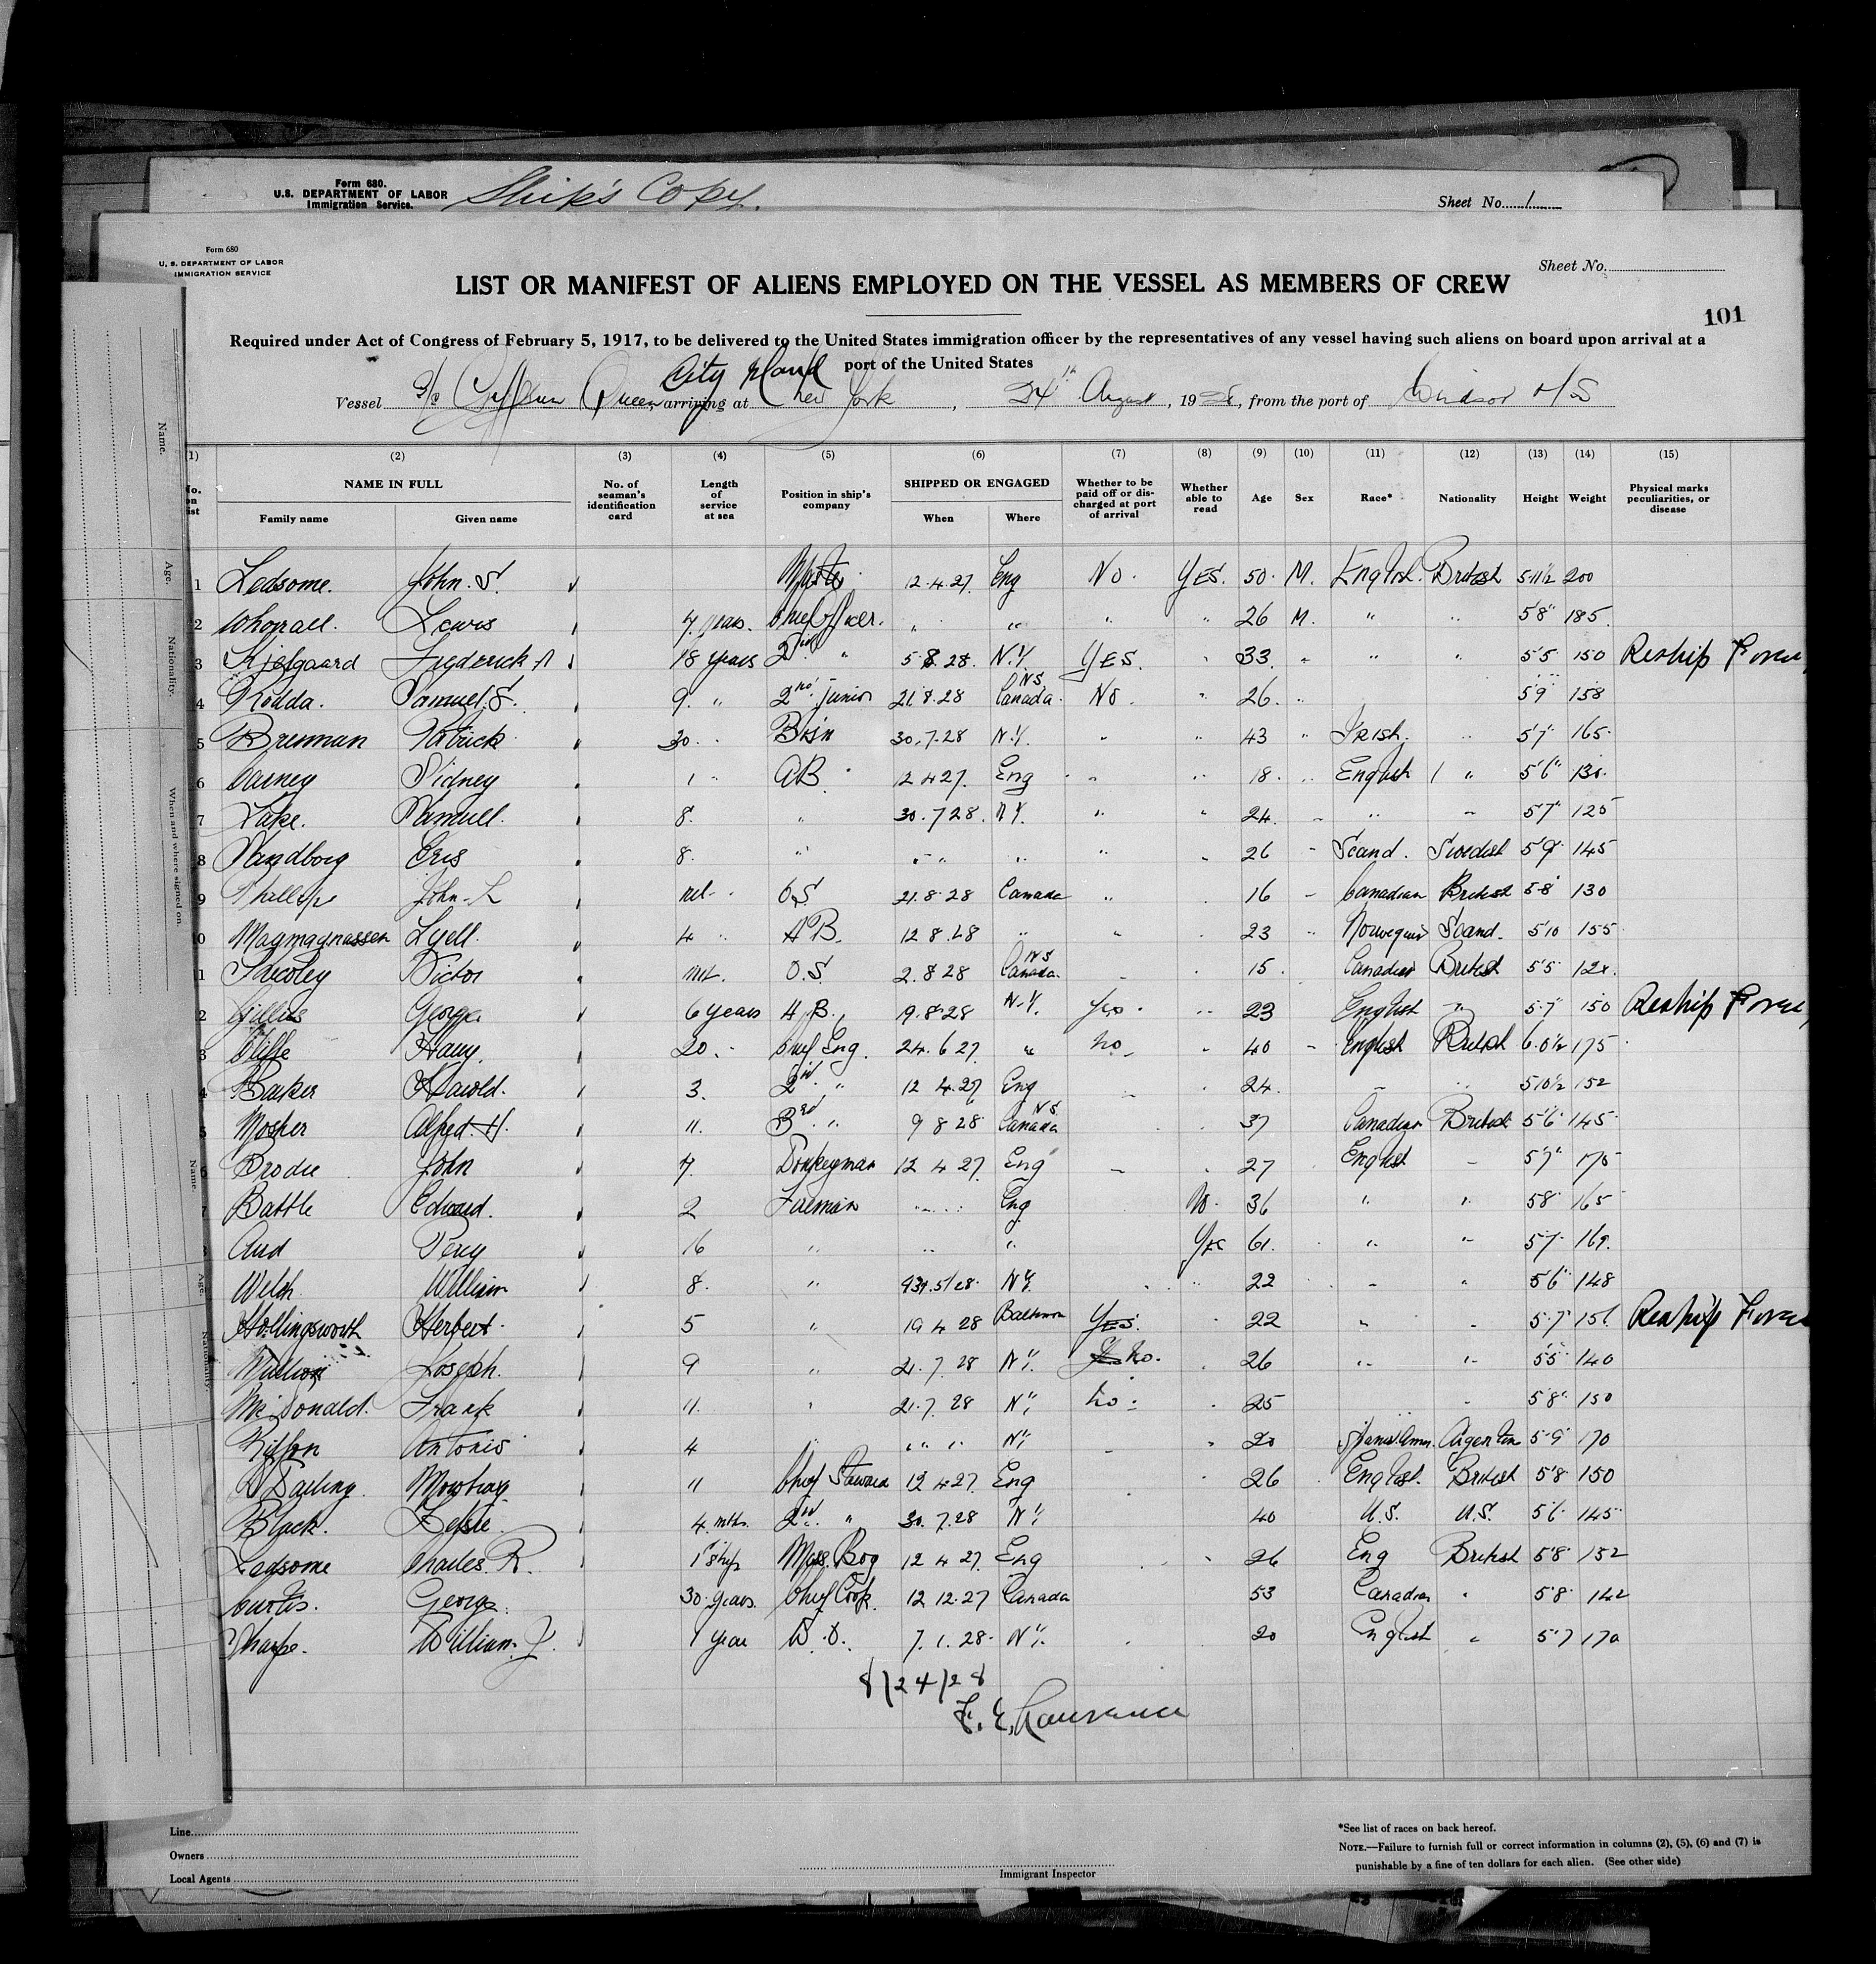 Form 680.
U.S. DEPARTMENT OF LABOR
Immigration Service.
Ship's Copy.
Sheet No. 1
Form 680
U. S. DEPARTMENT OF LABOR
IMMIGRATION SERVICE
Sheet No.
LIST OR MANIFEST OF ALIENS EMPLOYED ON THE VESSEL AS MEMBERS OF CREW
101
Required under Act of Congress of February 5, 1917, to be delivered to the United States immigration officer by the representatives of any vessel having such aliens on board upon arrival at a
port of the United States
City Island
Vessel Queen, arriving at New York, 24th August, 1928, from the port of Windsor N/S
(1) (2) (3) (4) (5) (6) (7) (8) (9) (10) (11) (12) (13) (14) (15)
No. on list NAME IN FULL Family name Given name No. of seaman's identification card Length of service at sea Position in ship's company SHIPPED OR ENGAGED When Where Whether to be paid off or discharged at port of arrival Whether able to read Age Sex Race* Nationality Height Weight Physical marks peculiarities, or disease
1 Ledsome. John. S. Master 12.4.27. Eng No. YES. 50. M. English. British 5·11½ 200
2 Whorrall. Lewis 7. years. Chief Officer. " " " " 26 M. " " 5'8" 185.
3 Kjelgaard Frederick 18 years 2nd " 5.8.28. N.Y. YES. " 33. " " " 5'5 150 Reship
4 Rodda. Samuel. S. 9. " 2nd Junior 21.8.28 N.S. Canada. No. " 26. " 5'9 158
5 Brennan Patrick 30. Bs'n 30.7.28 N.Y. " " 43 " Irish. " 5'7" 165.
6 Carney Sidney 1 " AB 12 4 27. Eng " " 18. " English " 5'6" 130.
7 Lake. Samuell. 8. " 30.7 28. N.Y. " " 24. " " " 5'7" 125
8 Sandborg Eris 8. " " " " 26 " Scand. Swedish 5'9. 145
9 Phillips John. L nil. O.S 21.8.28 Canada " 16 " Canadian British 5·8 130
10 Magmagnassen Lyell. 4 " A B. 12 8.28 " " 23 " Norwegian Scand. 5'10 155
1 Victor O.S. 2.8 28 N.S Canada. " 15. Canadian British 5'5
2 Gillies George. 6 years A.B. 9.8.28 N.Y. Yes. " 23 English " 5·7" 150 Reship
3 Cliffe Harry. 20. " Chief Eng. 24.6 27 " No " 40 " English British 6.0½ 175
4 Barker Harold. 3. 2nd " 12 4.27 Eng 24. " 5·10½ 152
5 Mosher Alfred. H. 11. 3rd " 9 8 28 N.S Canada 37 Canadian British 5'6" 145
6 Brodie John 7. Donkeyman 12 4 27. Eng 27 English " 5'7" 175
7 Battle Edward. 2 Fireman " Eng No. 36 " " 5 8 165
16 " " " Yes 61. " " 5·7. 169.
Welsh William 8. " N.Y. 22 " " 5'6" 148
Hollingsworth Herbert. 5 " 19 4 28 Baltimore YES. 22 " " 5·7 Reship
Joseph. 9 " 21.7.28 N.Y. No. 26 " " 5'5 140
McDonald. Frank 11. " 21.7.28 N.Y. No. 25 " 5'8" 150
Antonio 4 " " N.Y. 20 Argentine 5·9 170
Darling. Mowbray 11 Chief Steward 12 4 27. Eng 26 English. British 5'8 150
Black. Leslie. 4. mths. 2nd " 30.7.28 N.Y. 40 U.S. U.S. 5'6 145
Ledsome Charles. R. 1st ship Mess. Boy 12 4 27 Eng 26 Eng British 5'8 152
Curtis. George. 30. years. Chief Cook. 12 12.27 Canada 53 Canadian " 5'8. 142
Sharpe. William. J. 1 year 7.1.28. N.Y. 20 English " 5·7 170
8/24/28
Line
Owners
Local Agents
Immigrant Inspector
*See list of races on back hereof.
NOTE.—Failure to furnish full or correct information in columns (2), (5), (6) and (7) is
punishable by a fine of ten dollars for each alien. (See other side)
Name.
Age.
Nationality.
When and where signed on.
Name.
Age.
Nationality.